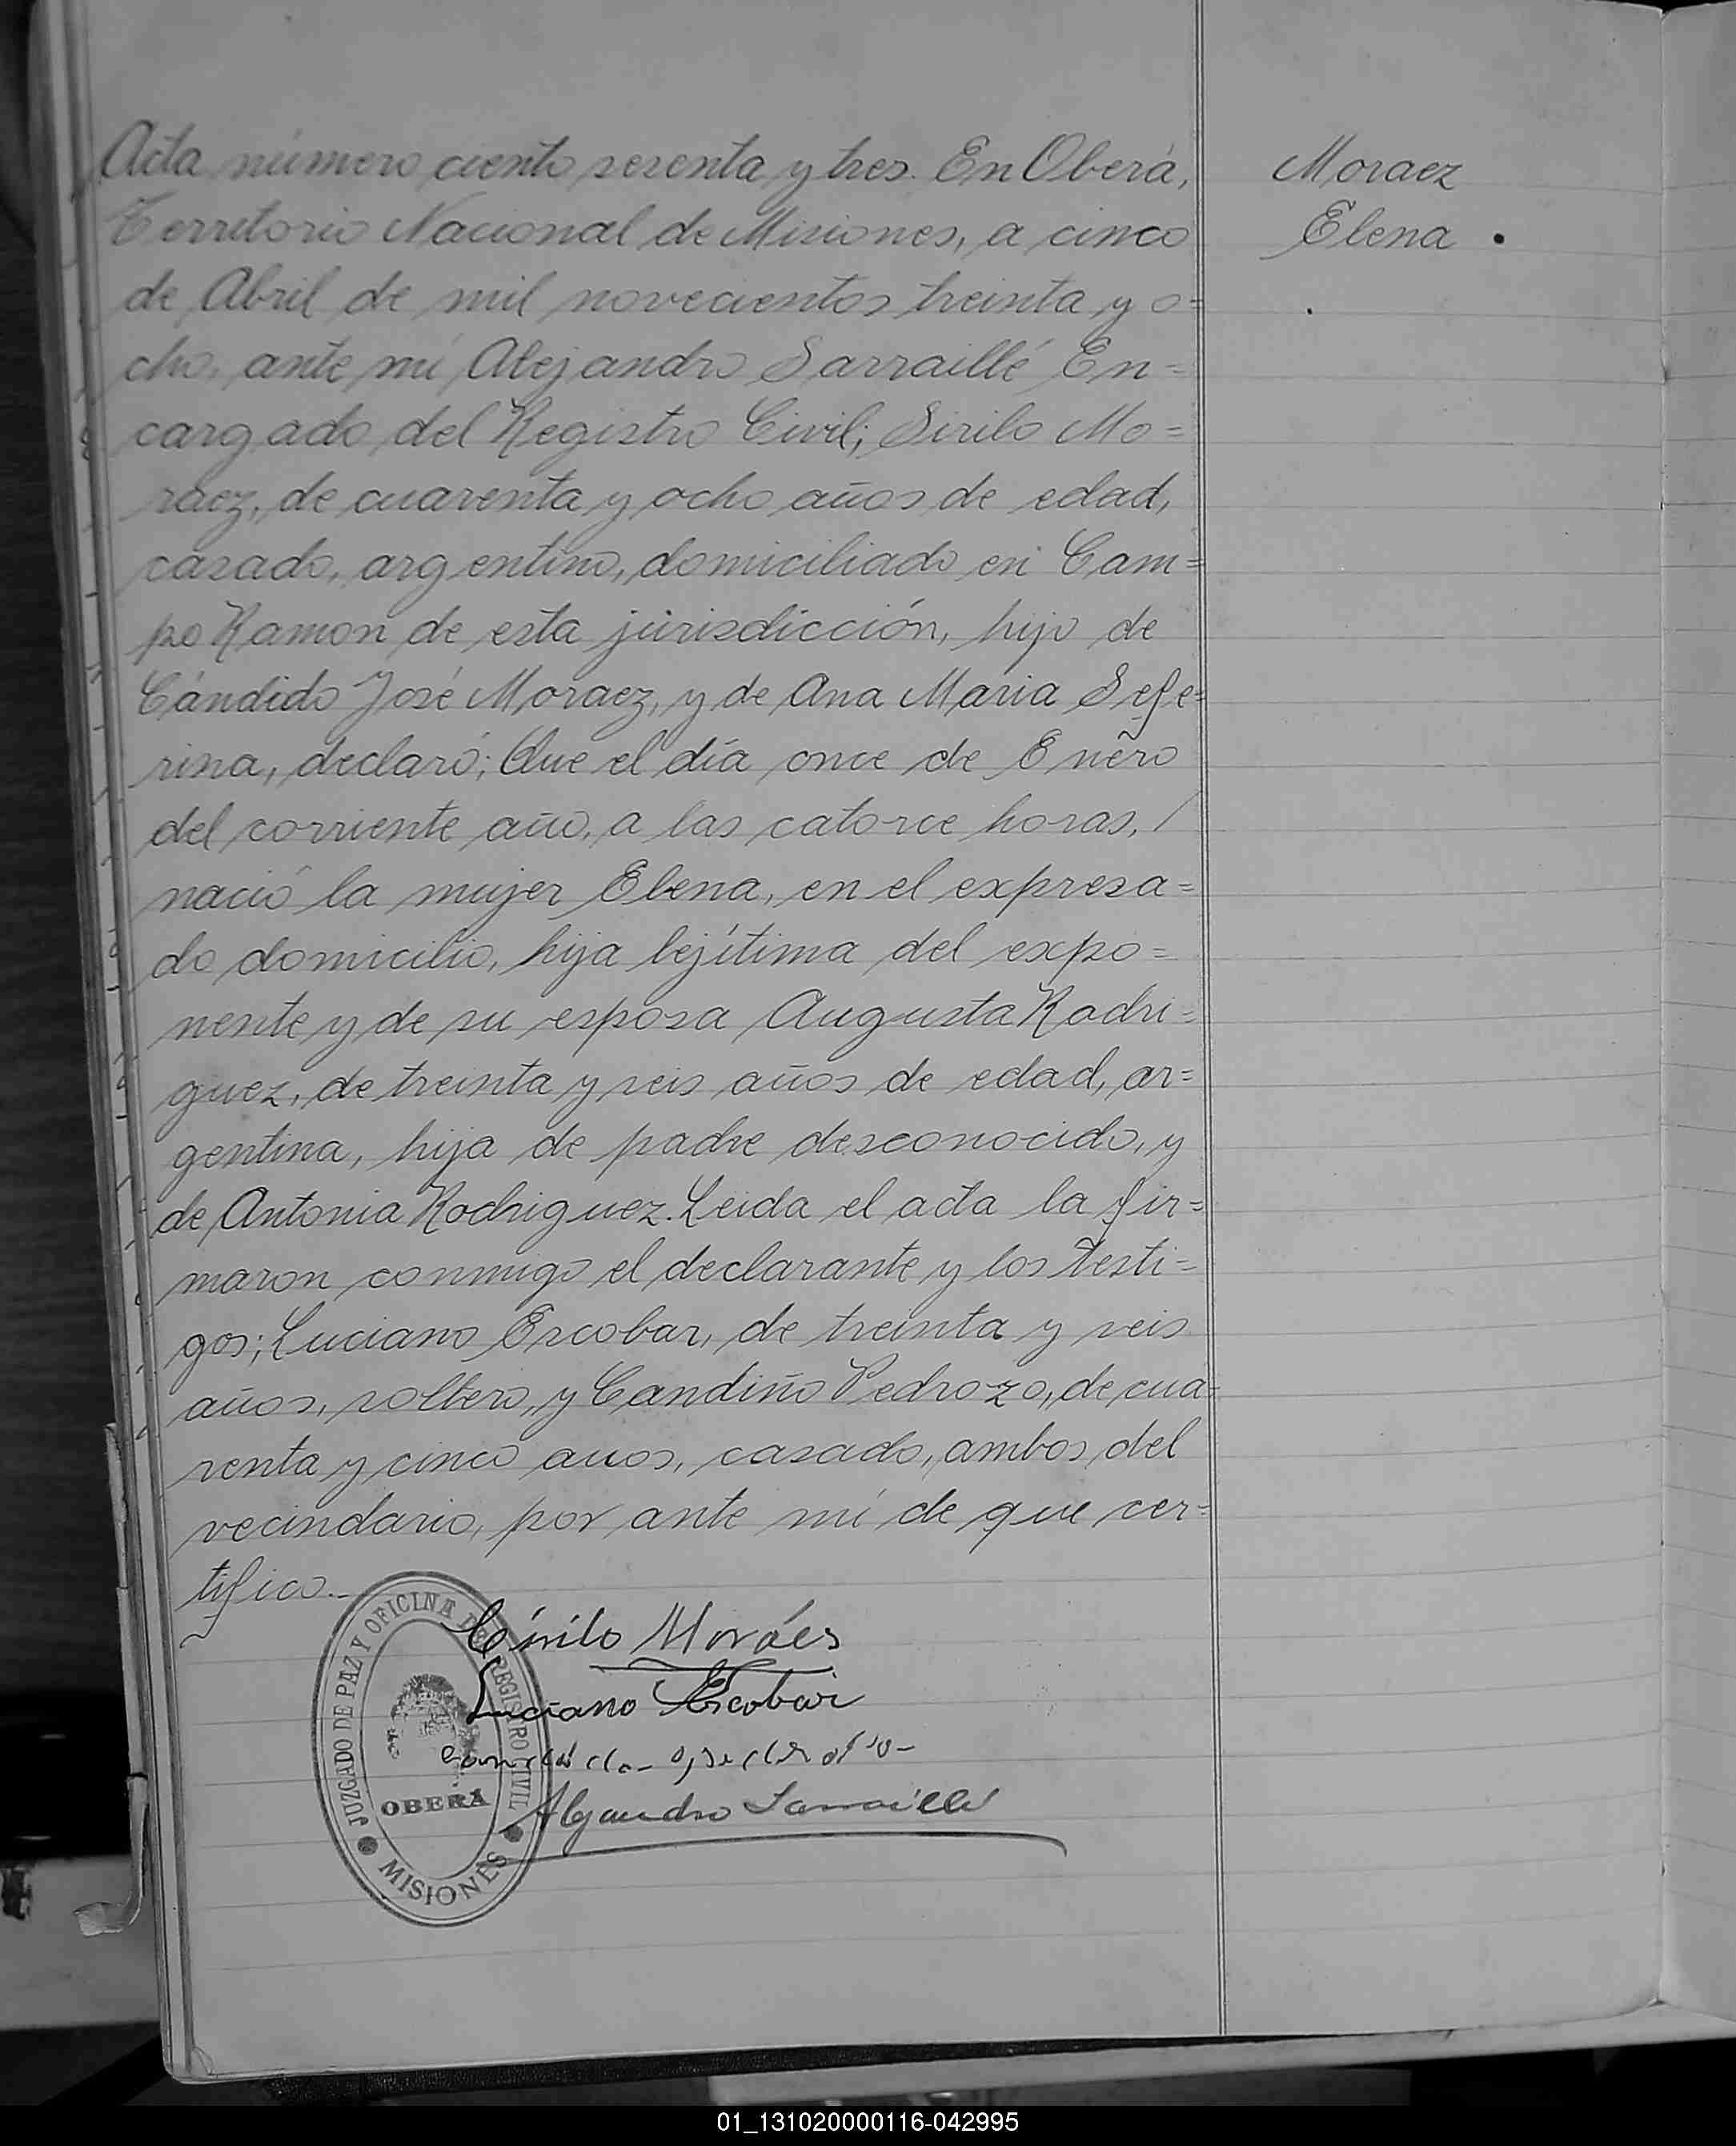 Acta número ciento sesenta y tres. En Oberá,
Territorio Nacional de Misiones, a cinco
de Abril de mil novecientos treinta y o=
cho, ante mí Alejandro Sarraillé En=
cargado del Registro Civil; Sirilo Mo=
raez, de cuarenta y ocho años de edad,
casado, argentino, domiciliado en Cam=
po Ramon de esta jurisdicción, hijo de
Cándido José Moraez, y de Ana Maria Sefe=
rina, declaró; Que el día once de Enero
del corriente año, a las catorce horas, /
nació la mujer Elena, en el expresa=
do domicilio, hija lejítima del expo=
nente y de su esposa Augusta Rodri=
guez, de treinta y seis años de edad, ar=
gentina, hija de padre desconocido, y
de Antonia Rodriguez. Leida el acta la fir=
maron conmigo el declarante y los testi=
gos; Luciano Escobar, de treinta y seis
años, soltero, y Candiño Pedrozo, de cua=
renta y cinco anos, casado, ambos del
vecindario, por ante mí de que cer=
tifico.-
Moraez
Elena .
Círilo Moráes
Luciano Escobar
Alejandro Sarraillé
JUZGADO DE PAZ Y OFICINA DEL REGISTRO CIVIL
OBERÁ
MISIONES
01_131020000116-042995